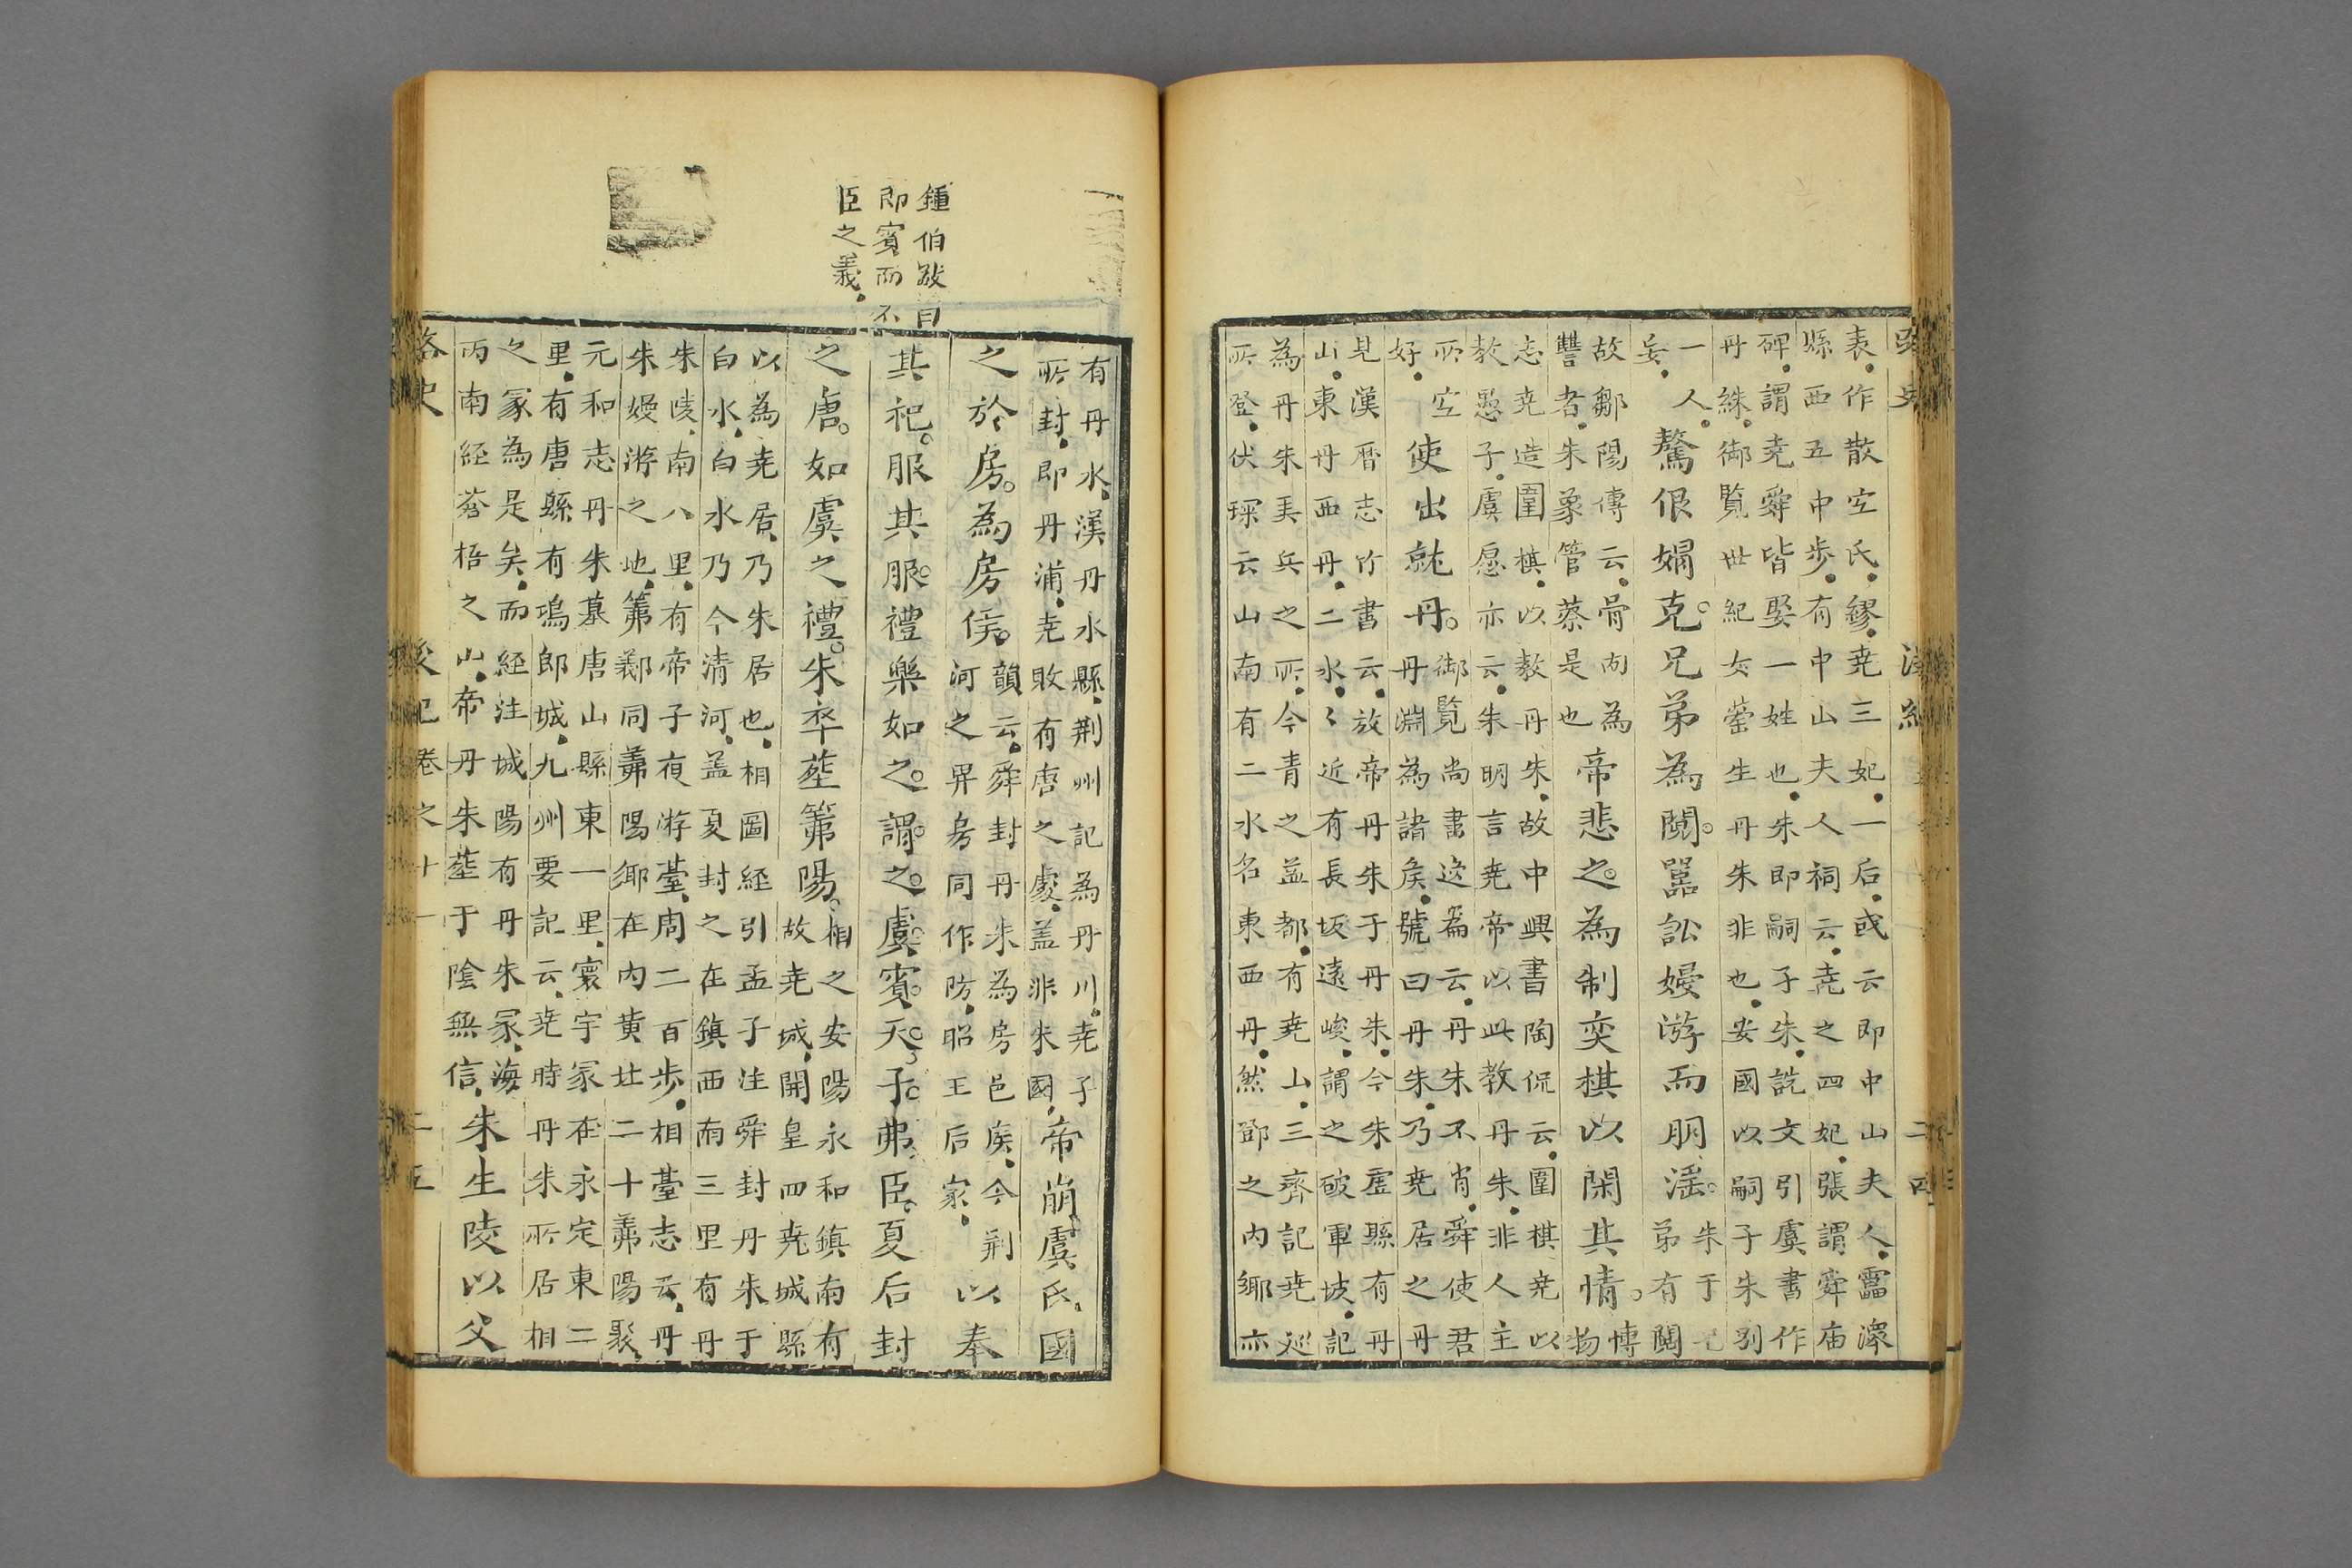 表作散宐氏繆堯三妃一后或云即中山夫人靈㵗
縣西五中歩有中山夫人祠云堯之四妃張謂舜庙
碑謂堯舜皆娶一姓也朱即嗣子朱説文引虞書作
丹絑御覧世紀女瑩生丹朱非也安國以嗣子朱别
一人
妄
驁佷媚克兄弟為䦧嚚訟嫚游而朋滛
朱于兄
弟有䦧
故鄒陽傳云骨肉為
讐者朱象管蔡是也
帝悲之為制奕棋以閑其情
博
物
志堯造圍棋以教丹朱故中興書陶侃云圍棋堯以
教愚子虞愿亦云朱明言堯帝以此教丹朱非人主
所宐
好
使出就丹
御覧尚書逸篇云丹朱不肖舜使君
丹淵為諸矦號曰丹朱乃堯居之丹
見漢暦志竹書云放帝丹朱于丹朱今朱虛縣有丹
山東丹西丹二水〻近有長坂遠峻謂之破軍坡記
為丹朱弄兵之所今青之益都有堯山三齊記堯廵
所登伏琛云山南有二水名東西丹然鄧之内鄉亦
路史
後紀卷之十一
二四
鍾伯敬曰
即賓而不
臣之義
有丹水漢丹水縣荆州記為丹川堯子
所封即丹浦堯敗有唐之處盖非朱國
帝崩虞氏國
之於房為房侯
韻云舜封丹朱為房邑矦今荆
河之畀房同作防昭王后家
以奉
其祀服其服禮樂如之謂之虞賓天子弗臣夏后封
之唐如虞之禮朱卒葬䔲陽
相之安陽永和鎮南有
故堯城開皇四堯城縣
以為堯居乃朱居也相圖經引孟子注舜封丹朱于
白水白水乃今清河孟夏封之在鎮西南三里有丹
朱陵南八里有帝子夜游䑓周二百歩相䑓志云丹
朱嫚游之地䔲鄴同䔲陽鄉在内黄北二十䔲陽聚
元和志丹朱墓唐山縣東一里寰宇冢在永定東二
里有唐縣有鳿郎城九州要記云堯時丹朱所居相
之冢為是矣而経注城陽有丹朱冢海
内南経蒼梧之山帝丹朱葬于陰無信
朱生陵以父
路史
後紀卷之十一
二五